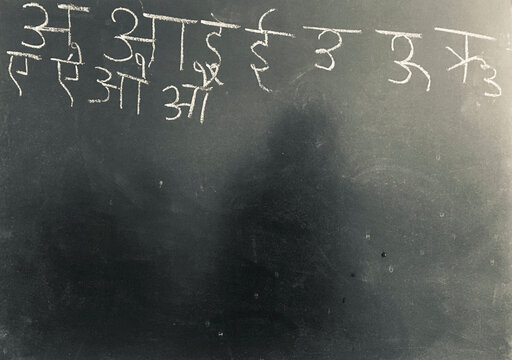 अ आ इ ई उ ऊ ऋ
ए ऐ ओ औ